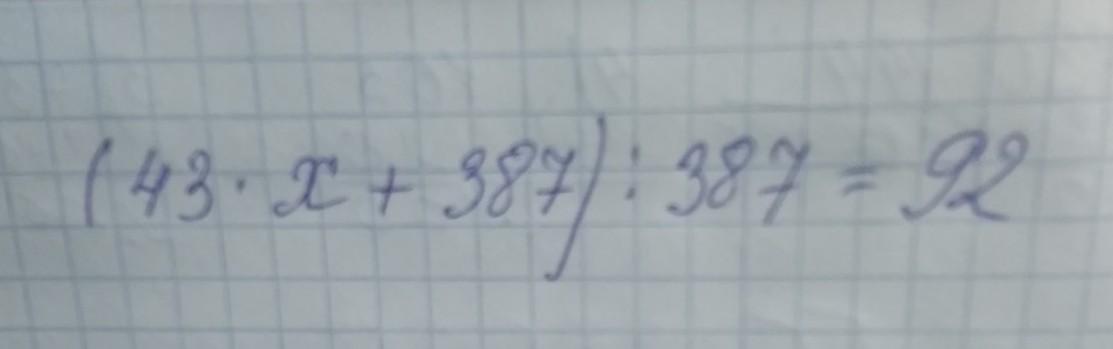 (43 · x + 387) : 387 = 92